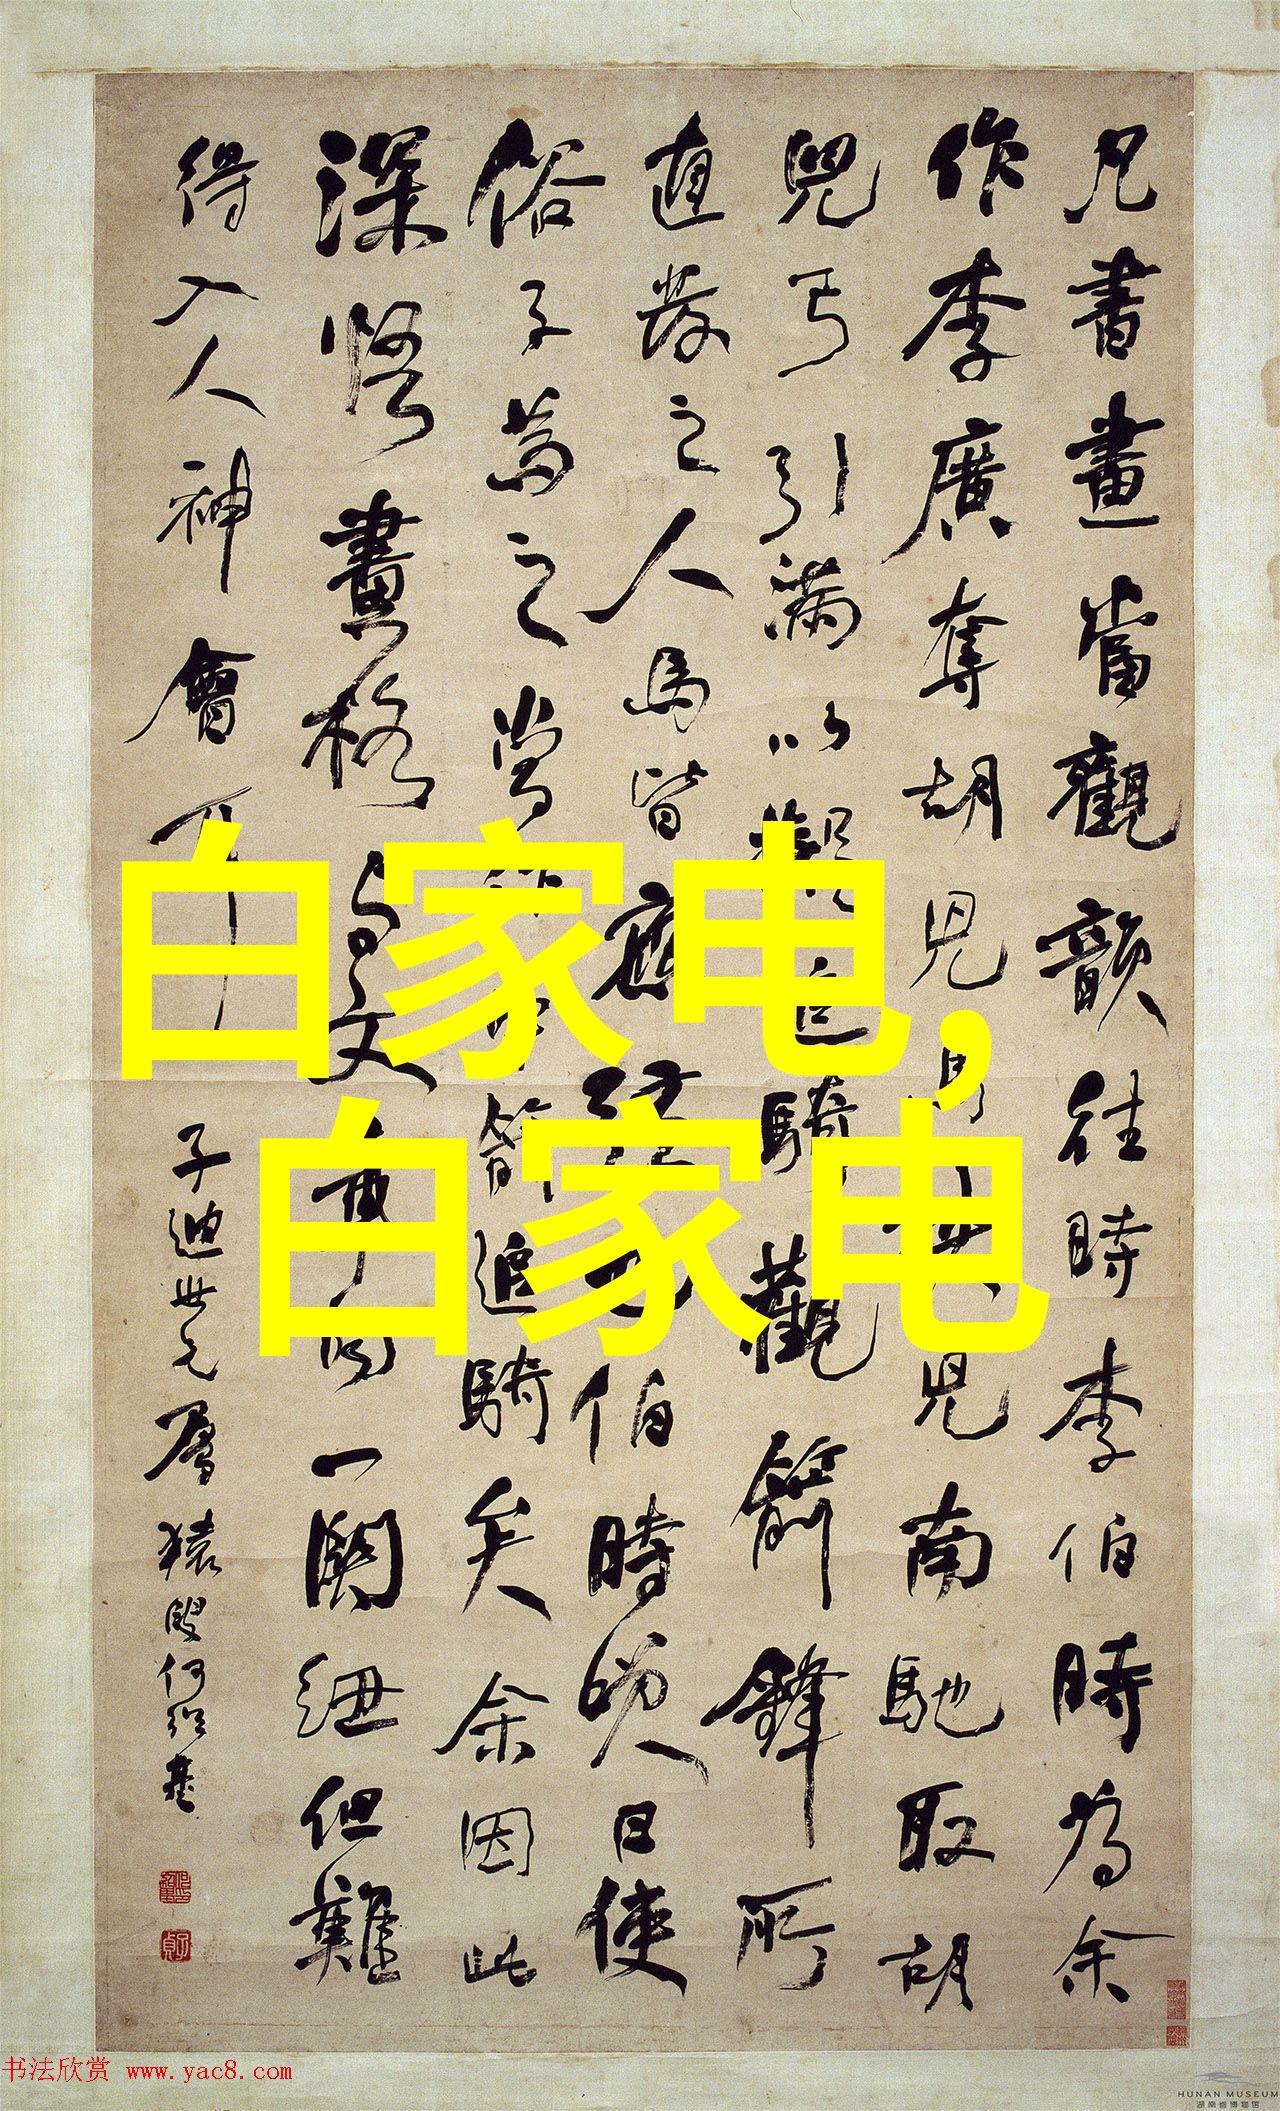 凡書畫當觀韻往時李伯時為余
作李廣奪胡兒馬挾兒南馳取胡
兒弓引滿以觀追騎觀箭鋒所
直發之人馬皆應弦也伯時笑曰使
俗子為之當作中箭追騎矣余因此
深悟畫格與文章同一關紐但難
得入人神會耳
子迪世兄屬 猿叟何紹基
白家电,
白家电
书法欣赏 www.yac8.com
HUNAN MUSEUM
湖南省博物馆